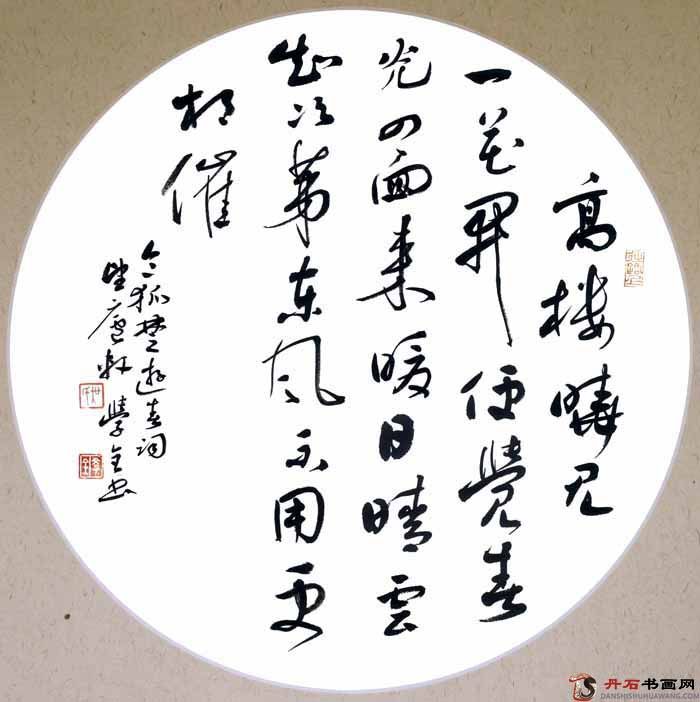 高楼曉見
一花開便覺春
光四面来暖日晴雲
知次第东風不用更
相催
令狐楚遊春词
學全书
丹石书画网
DANSHISHUHUAWANG.COM